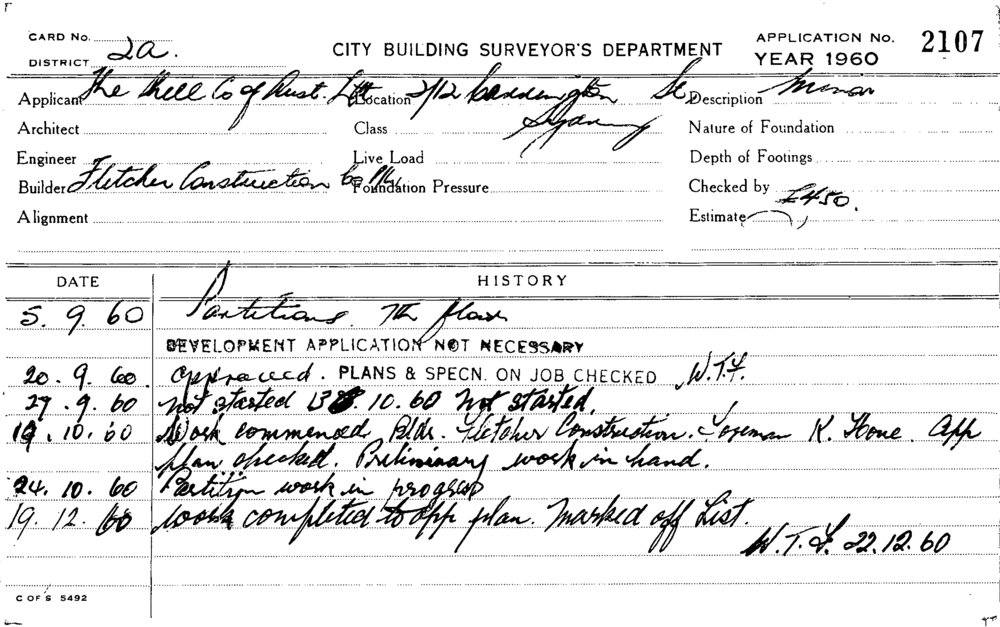 CARD No.
DISTRICT 2a.
CITY BUILDING SURVEYOR'S DEPARTMENT
APPLICATION No. 2107
YEAR 1960
Applicant The Shell Co of Aust. Ltd Location 2/12 Carrington St Description Minor
Architect Class Sydney Nature of Foundation
Engineer Live Load Depth of Footings
Builder Fletcher Construction Co Foundation Pressure Checked by
Alignment Estimate £450.
DATE HISTORY
5. 9. 60 Partitions 7th floor
DEVELOPMENT APPLICATION NOT NECESSARY
20. 9. 60. approved. PLANS & SPECN. ON JOB CHECKED W.T.F.
27. 9. 60 not started 13. 10. 60 Not started.
19. 10. 60 Work commenced Bldr. Fletcher Construction. Foreman K. Hone. app
plan checked. Preliminary work in hand.
24. 10. 60 Partition work in progress
19. 12. 60 work completed to app plan. Marked off List.
W.T.F. 22.12.60
C OF S 5492